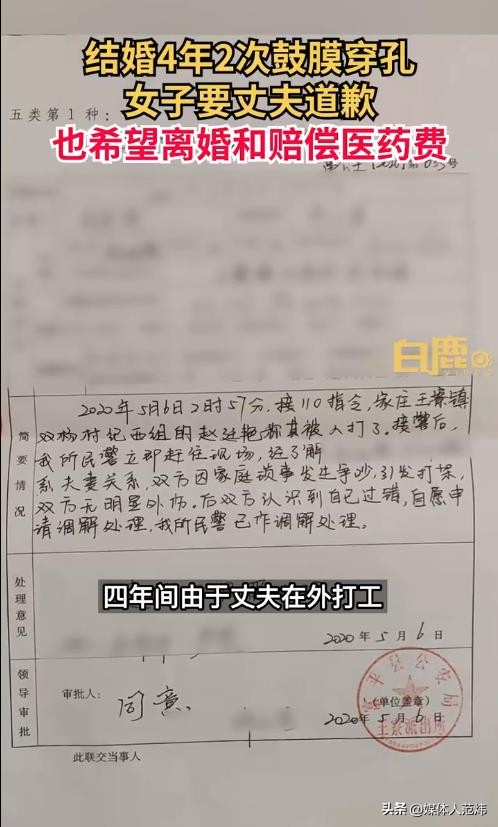 结婚4年2次鼓膜穿孔
女子要丈夫道歉
五类第1种：
也希望离婚和赔偿医药费
号
白鹿
VIDEO
简要情况
2020年5月6日2时57分，接110指令，家庄王寮镇
纪西组的赵 称其被人打了。接警后，
我所民警立即赶往现场，经了解
系夫妻关系，双方因家庭琐事发生争吵，引发打架，
双方无明显外伤。后双方认识到自己过错，自愿申
请调解处理，我所民警已作调解处理。
处理意见
四年间由于丈夫在外打工
2020年5月6日
领导审批
审批人：
同意
平县公安局
派出所
（单位盖章）
2020年5月6日
此联交当事人
头条 @媒体人范炜